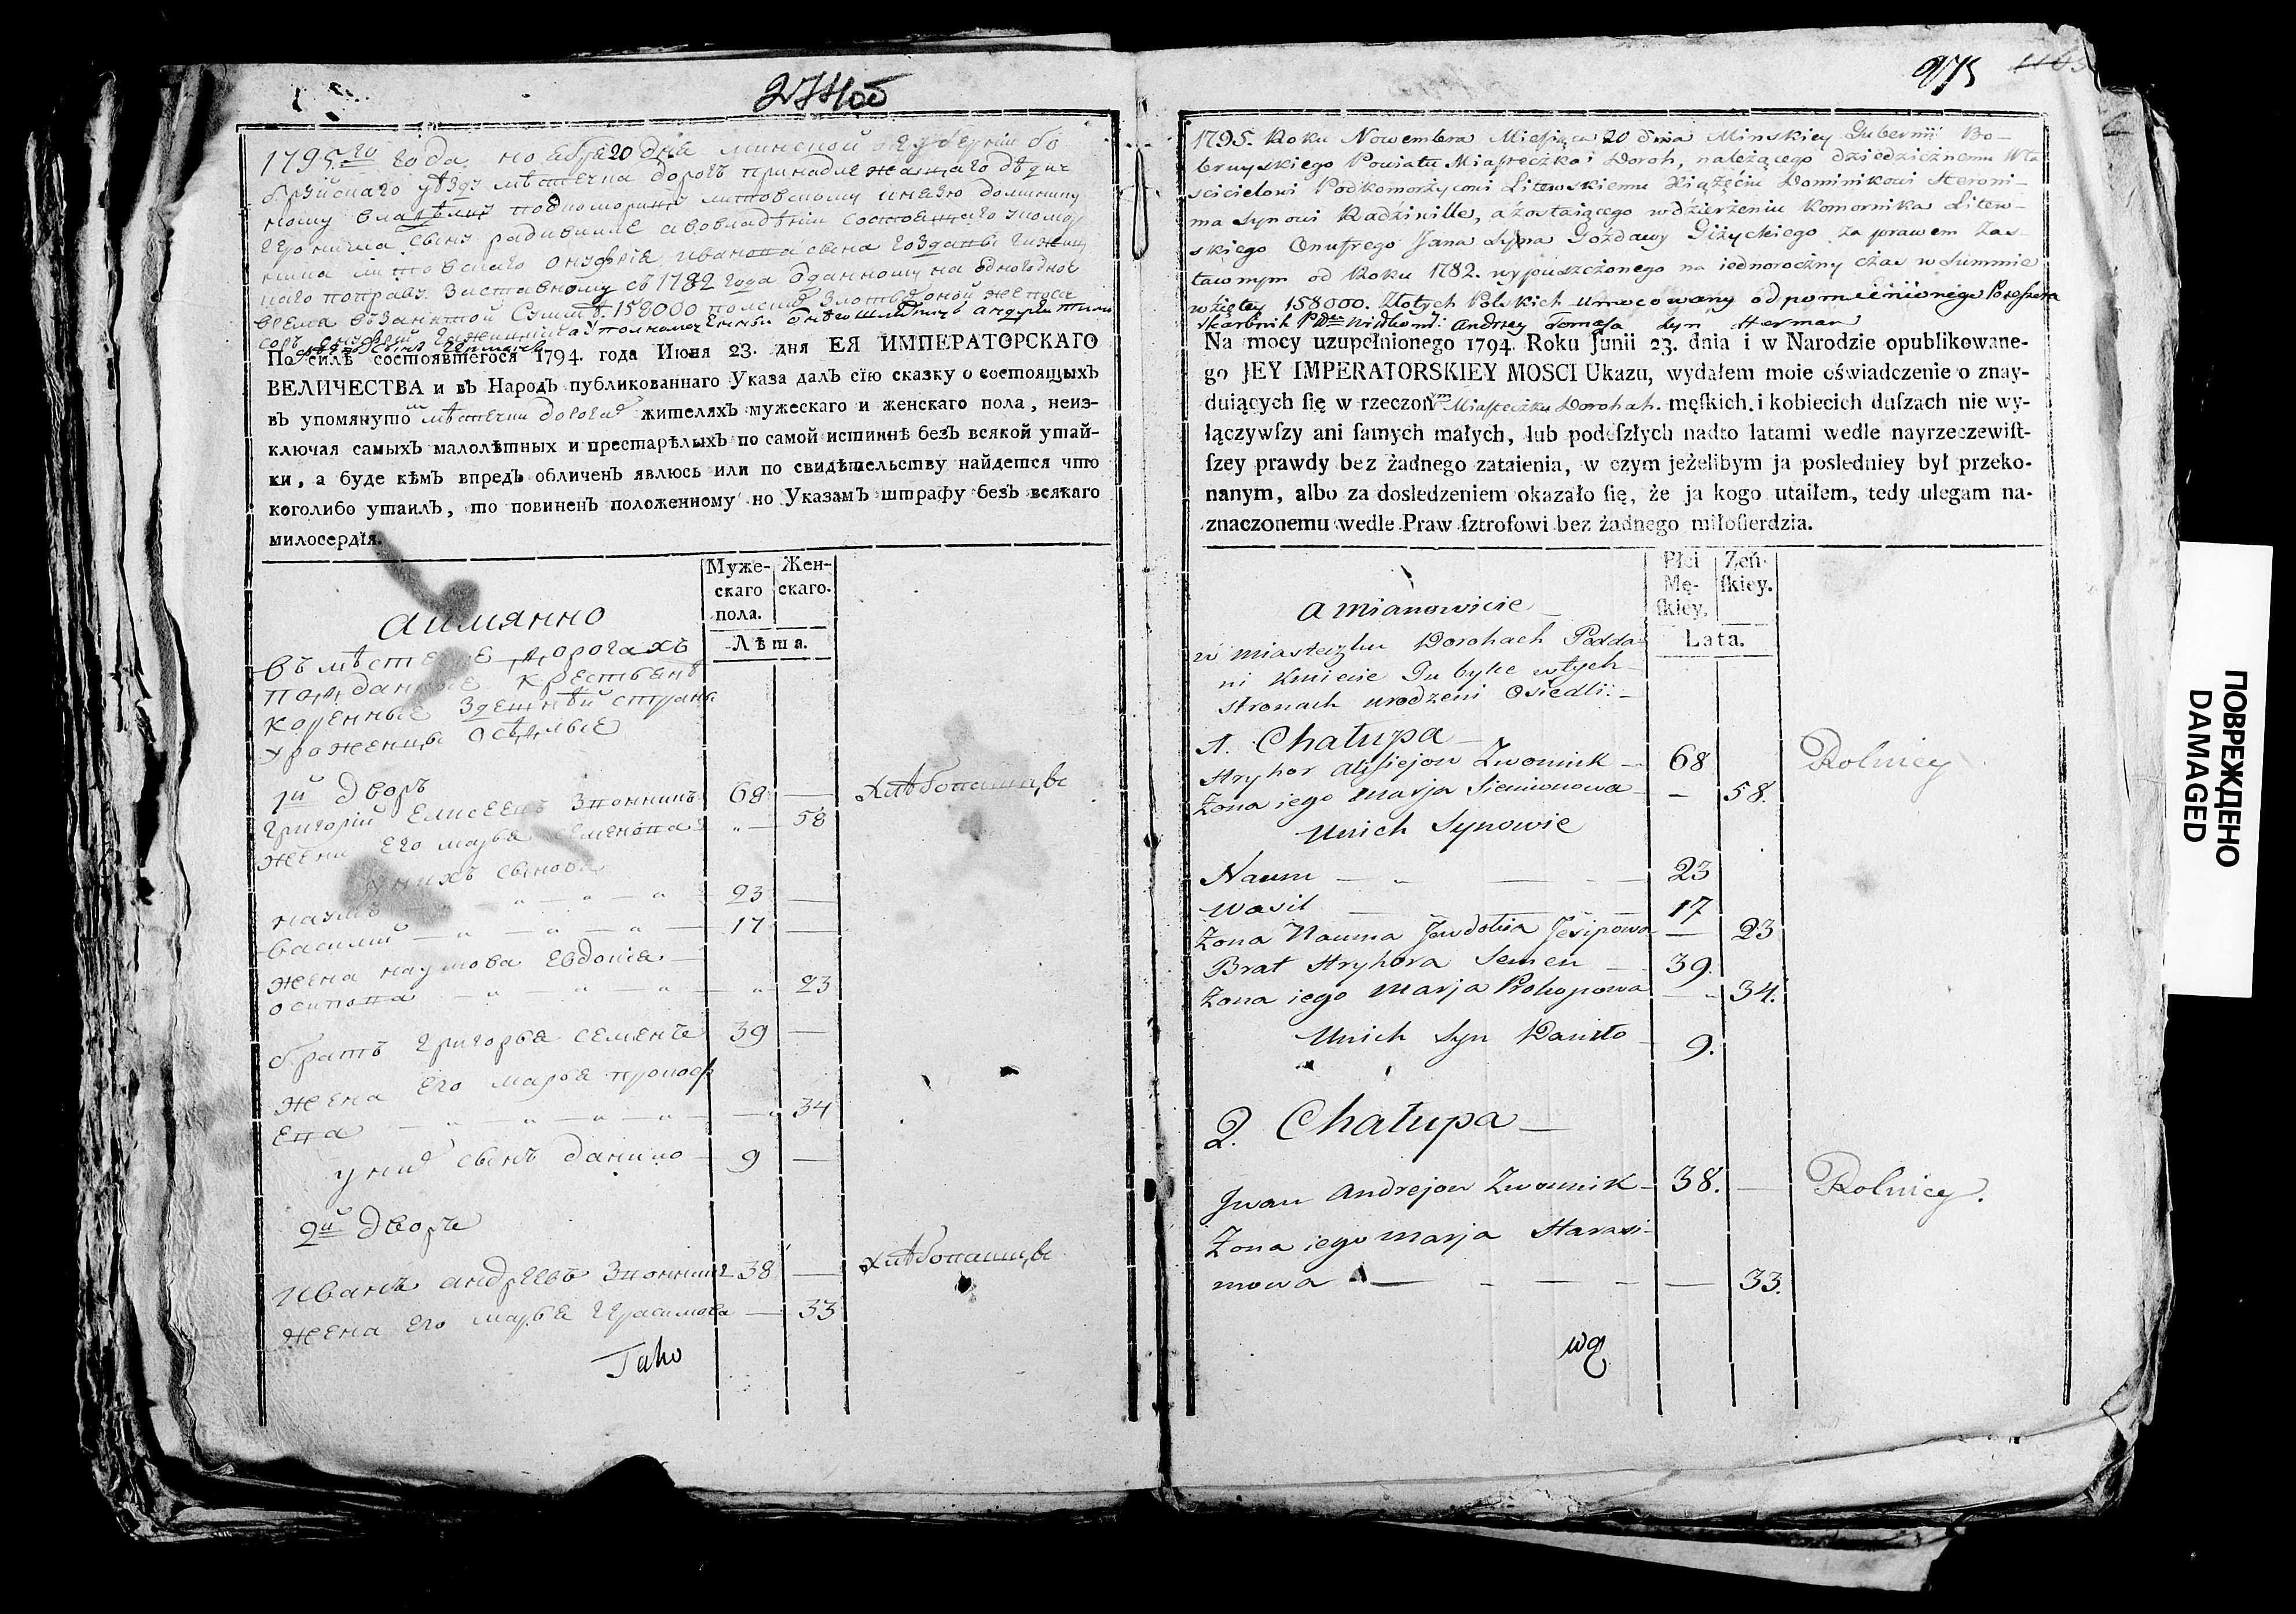 274об
1795го года ноября 20 дня минской губернии бо
бруйского уезду местечка дорогъ принадлежащаго дедич
ному владелцу подкоморичу литовскому князю доминику
иеронима сыну радивиле а во владении состоящаго у комор
ника литовскаго онуфрия иванова сына гоздавы гижиц
каго по праву заставному съ 1782 года данному на одногодное
время въ занятой сумме 158000 полскихъ злотыхъ
По силѣ состоявшегося 1794. года Июня 23. дня ЕЯ ИМПЕРАТОРСКАГО
ВЕЛИЧЕСТВА и въ Народъ публикованнаго Указа далъ сїю сказку о состоящыхъ
въ упомянутомъ местечки дорогахъ жителяхъ мужескаго и женскаго пола, неиз-
ключая самыхъ малолѣтныхъ и престарѣлыхъ по самой истиннѣ безъ всякой утай-
ки, а буде кѣмъ впредъ обличенъ явлюсь или по свидѣтельству найдется что
коголибо утаилъ, то повиненъ положенному по Указамъ штрафу безъ всякаго
милосердїя.
Муже-
скаго
пола.
Жен-
скаго.
Лѣта.
а имянно
въ местечке дорогахъ
подданые крестьяне
коренные здешней страны
уроженцы оседлые
1й дворъ
григорий елисеевъ звонникъ 68 — хлебопашцы
жена его марья семенова „ — 58
у нихъ сынова
наумъ — „ — „ — „ 23 —
василий — „ — „ — „ — 17 —
жена наумова евдокия —
осипова — „ — „ — „ — „ 23
братъ григорья семенъ 39 —
жена его марья прокоф
ева — „ — „ — „ — — „ 34
у них сынъ данило — 9 —
2й дворъ
иванъ андреевъ звонникъ 38 — хлебопашцы
жена его марья герасимова — 33
Тако
975
1795. Roku Nowembra Miesiąca 20 dnia Minskiey Gubernii Bo-
bruyskiego Powiatu Miasteczka Doroh, należącego dziedzicznemu Wła
scicielowi Podkomorzycowi Litewskiemu Xiążęciu Dominikowi Heroni-
ma Synowi Radziwille, a zostaiącego w dzierżeniu Komornika Litew-
skiego Onufrego Jana Syna Gozdawy Giżyckiego za prawem Zas-
tawnym od Roku 1782. wypuszczonego na iednoroczny czas w Summie
wziętey 158000. Złotych Polskich Umocowany od pomienionego Possessora
Skarbnik Andrzey Tomasza Syn Herman
Na mocy uzupełnionego 1794. Roku Junii 23. dnia i w Narodzie opublikowane-
go JEY IMPERATORSKIEY MOSCI Ukazu, wydałem moie oświadczenie o znay-
duiących ſię w rzeczonym Miasteczku Dorohah. męſkich. i kobiecich duſzach nie wy-
łączywſzy ani ſamych małych, lub podeſzłych nadto latami wedle nayrzeczewiſt-
ſzey prawdy bez żadnego zataienia, w czym jeżelibym ja posledniey był przeko-
nanym, albo za dosledzeniem okazało ſię, że ja kogo utaiłem, tedy ulegam na-
znaczonemu wedle Praw ſztrofowi bez żadnego miłoſierdzia.
Płci
Mę-
ſkiey.
Żeń-
ſkiey.
Lata.
a mianowicie
w miasteczku Dorohach Podda-
ni Kmiecie Tubylce w tych
stronach urodzeni Osiedli.
1. Chałupa —
Hryhor Alisiejow Zwonnik — 68 Rolnicy
Żona iego Marja Siemionowa — — 58.
Unich Synowie
Naum — „ — — 23
Wasil — — — 17
Żona Nauma Jewdokia Jesipowa — 23
Brat Hryhora Semen — 39.
Żona iego Marja Prokopowa — „ 34.
Unich Syn Daniło 9.
2. Chałupa —
Jwan Andrejow Zwonnik — 38. — Rolnicy.
Żona iego Marja Harasi-
mowa — — — — — 33.
wg
ПОВРЕЖДЕНО
DAMAGED